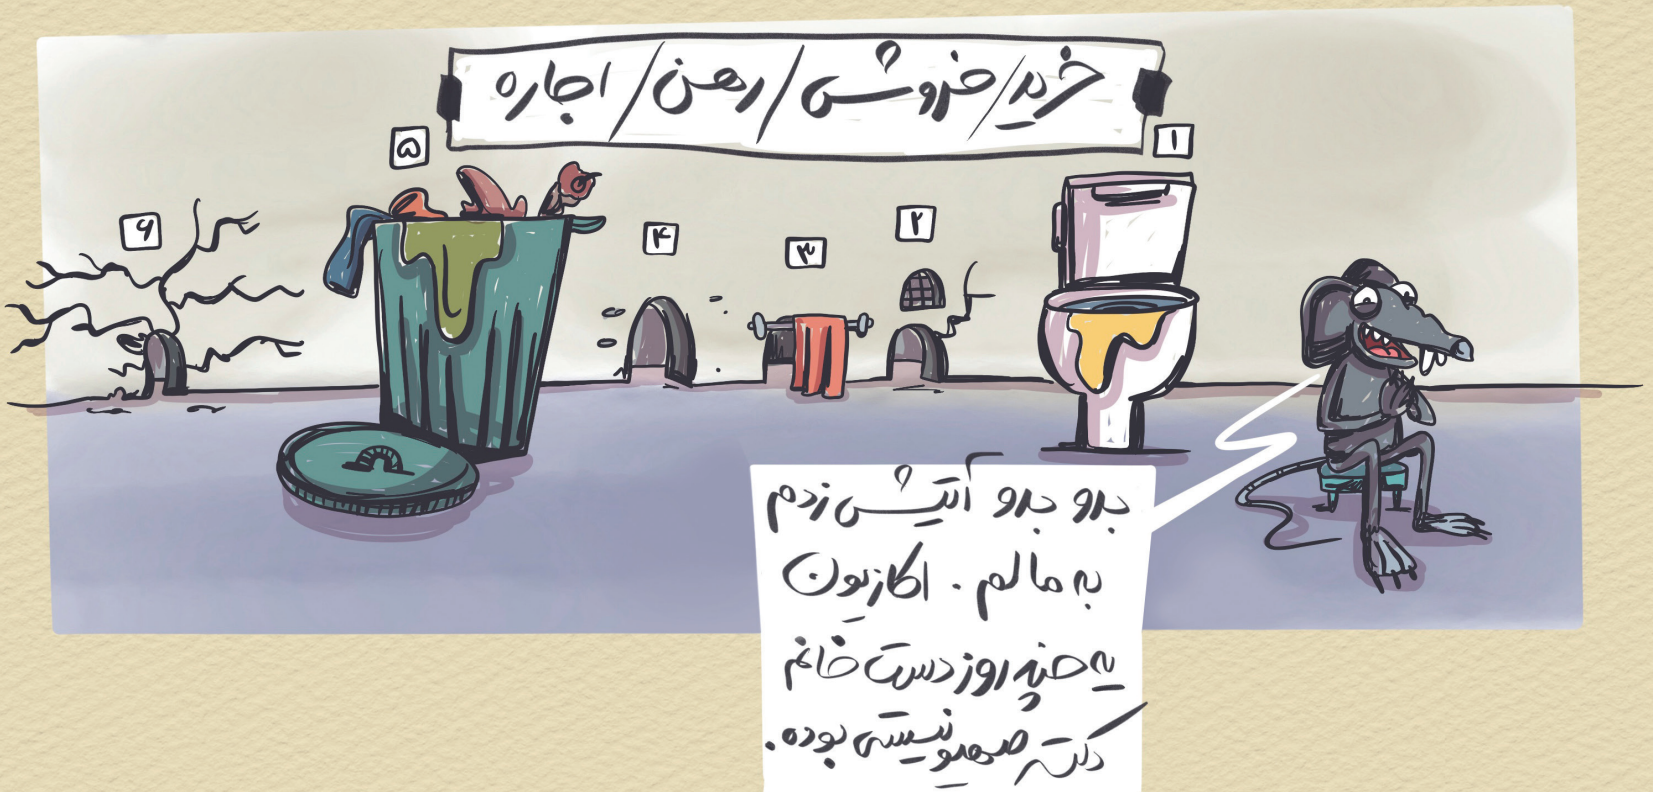 خرید/فروش/رهن/اجاره
۱
۲
۳
۴
۵
۶
بدو بدو آتیش زدم
به مالم. اکازیون
یه چند روز دست خانم
دکتر صهیونیستی بوده.